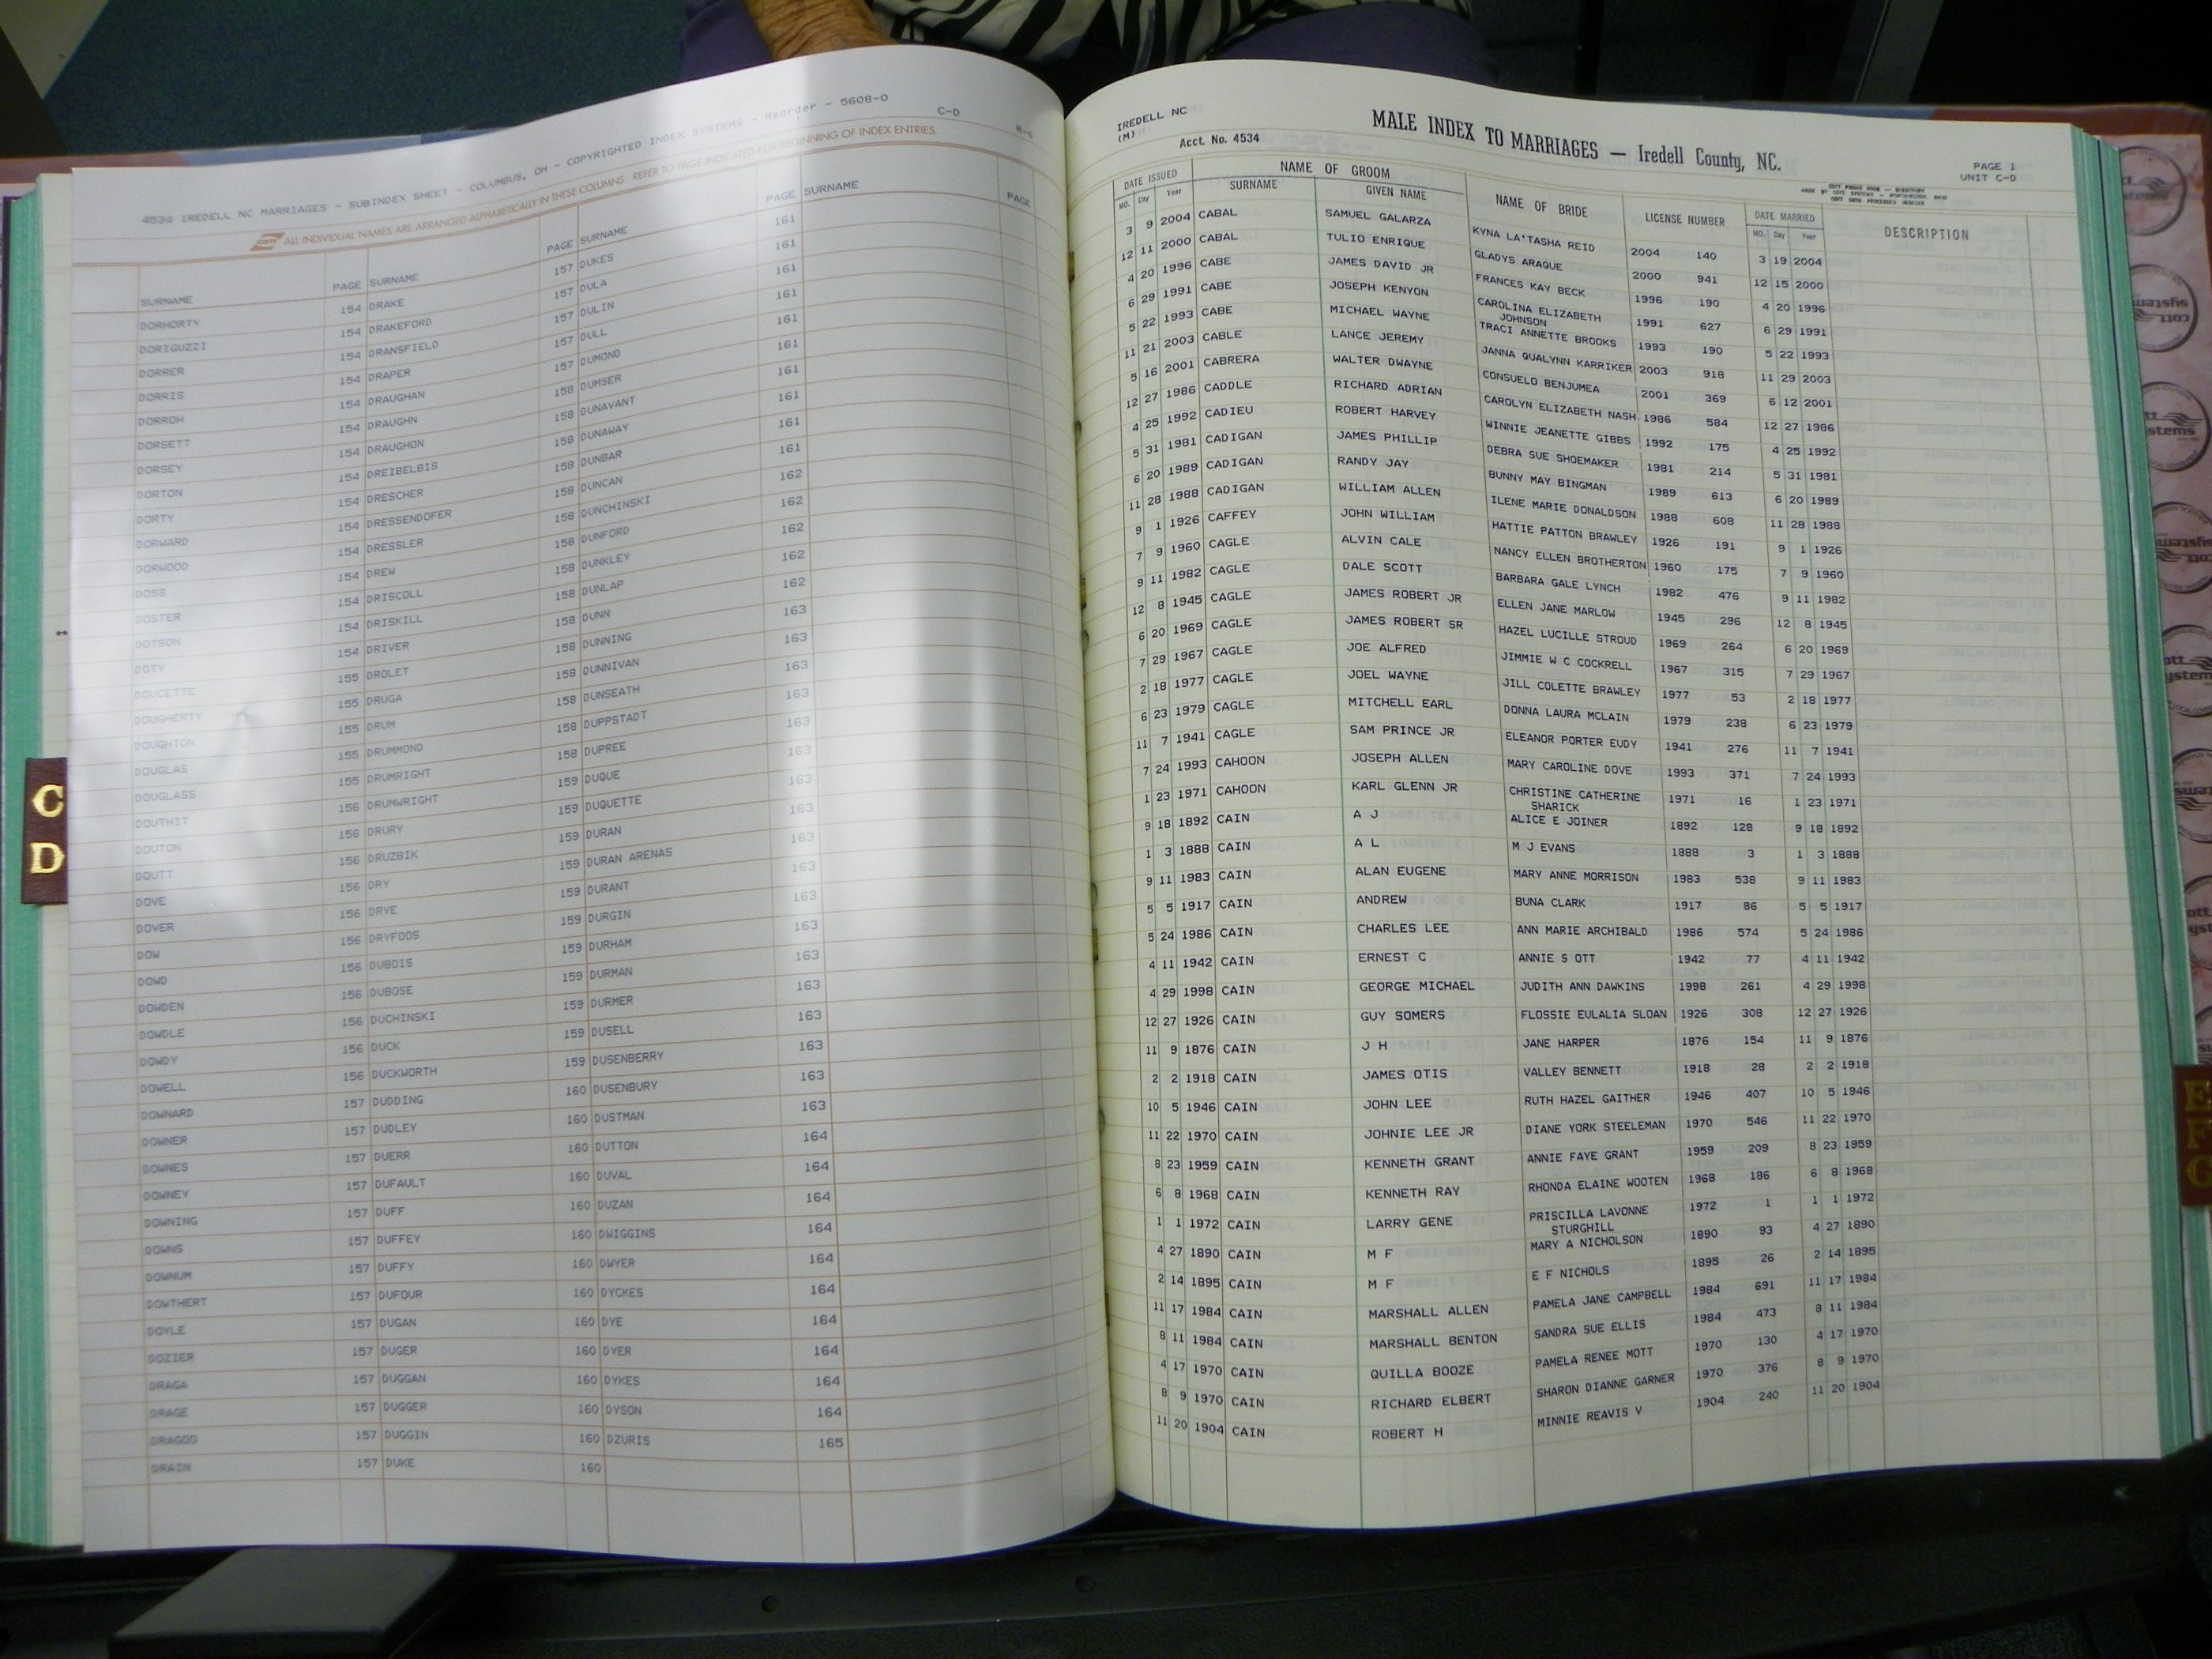 4534 IREDELL NC MARRIAGES - SUBINDEX SHEET - COLUMBUS, OH - COPYRIGHTED INDEX SYSTEMS - Reorder - 5608-0 C-D R-S
ALL INDIVIDUAL NAMES ARE ARRANGED ALPHABETICALLY IN THESE COLUMNS. REFER TO PAGE INDICATED FOR BEGINNING OF INDEX ENTRIES.
SURNAME PAGE SURNAME PAGE SURNAME PAGE SURNAME PAGE
DORHORTY 154 DRAKE 157 DUKES 161
DORIGUZZI 154 DRAKEFORD 157 DULA 161
DORRER 154 DRANSFIELD 157 DULIN 161
DORRIS 154 DRAPER 157 DULL 161
DORROH 154 DRAUGHAN 157 DUMOND 161
DORSETT 154 DRAUGHN 158 DUMSER 161
DORSEY 154 DRAUGHON 158 DUNAVANT 161
DORTON 154 DREIBELBIS 158 DUNAWAY 161
DORTY 154 DRESCHER 158 DUNBAR 161
DORWARD 154 DRESSENDOFER 158 DUNCAN 161
DORWOOD 154 DRESSLER 158 DUNCHINSKI 162
DOSS 154 DREW 158 DUNFORD 162
DOSTER 154 DRISCOLL 158 DUNKLEY 162
DOTSON 154 DRISKILL 158 DUNLAP 162
DOTY 154 DRIVER 158 DUNN 163
DOUCETTE 155 DROLET 158 DUNNING 163
DOUGHERTY 155 DRUGA 158 DUNNIVAN 163
DOUGHTON 155 DRUM 158 DUNSEATH 163
DOUGLAS 155 DRUMMOND 158 DUPPSTADT 163
DOUGLASS 155 DRUMRIGHT 158 DUPREE 163
DOUTHIT 156 DRUMWRIGHT 159 DUQUE 163
DOUTON 156 DRURY 159 DUQUETTE 163
DOUTT 156 DRUZBIK 159 DURAN 163
DOVE 156 DRY 159 DURAN ARENAS 163
DOVER 156 DRYE 159 DURANT 163
DOW 156 DRYFOOS 159 DURGIN 163
DOWD 156 DUBOIS 159 DURHAM 163
DOWDEN 156 DUBOSE 159 DURMAN 163
DOWDLE 156 DUCHINSKI 159 DURMER 163
DOWDY 156 DUCK 159 DUSELL 163
DOWELL 156 DUCKWORTH 159 DUSENBERRY 163
DOWNARD 157 DUDDING 160 DUSENBURY 163
DOWNER 157 DUDLEY 160 DUSTMAN 163
DOWNES 157 DUERR 160 DUTTON 164
DOWNEY 157 DUFAULT 160 DUVAL 164
DOWNING 157 DUFF 160 DUZAN 164
DOWNS 157 DUFFEY 160 DWIGGINS 164
DOWNUM 157 DUFFY 160 DWYER 164
DOWTHERT 157 DUFOUR 160 DYCKES 164
DOYLE 157 DUGAN 160 DYE 164
DOZIER 157 DUGER 160 DYER 164
DRAGA 157 DUGGAN 160 DYKES 164
DRAGE 157 DUGGER 160 DYSON 164
DRAGOO 157 DUGGIN 160 DZURIS 165
DRAIN 157 DUKE 160
C
D
IREDELL NC
(M)
Acct. No. 4534
MALE INDEX TO MARRIAGES — Iredell County, NC.
PAGE 1
UNIT C-D
DATE ISSUED NAME OF GROOM NAME OF BRIDE LICENSE NUMBER DATE MARRIED DESCRIPTION
MO. Day Year SURNAME GIVEN NAME MO. Day Year
3 9 2004 CABAL SAMUEL GALARZA KYNA LA'TASHA REID 2004 140 3 19 2004
12 11 2000 CABAL TULIO ENRIQUE GLADYS ARAQUE 2000 941 12 15 2000
4 20 1996 CABE JAMES DAVID JR FRANCES KAY BECK 1996 190 4 20 1996
6 29 1991 CABE JOSEPH KENYON CAROLINA ELIZABETH JOHNSON 1991 627 6 29 1991
5 22 1993 CABE MICHAEL WAYNE TRACI ANNETTE BROOKS 1993 190 5 22 1993
11 21 2003 CABLE LANCE JEREMY JANNA QUALYNN KARRIKER 2003 918 11 29 2003
5 16 2001 CABRERA WALTER DWAYNE CONSUELO BENJUMEA 2001 369 6 12 2001
12 27 1986 CADDLE RICHARD ADRIAN CAROLYN ELIZABETH NASH 1986 584 12 27 1986
4 25 1992 CADIEU ROBERT HARVEY WINNIE JEANETTE GIBBS 1992 175 4 25 1992
5 31 1981 CADIGAN JAMES PHILLIP DEBRA SUE SHOEMAKER 1981 214 5 31 1981
6 20 1989 CADIGAN RANDY JAY BUNNY MAY BINGMAN 1989 613 6 20 1989
11 28 1988 CADIGAN WILLIAM ALLEN ILENE MARIE DONALDSON 1988 608 11 28 1988
9 1 1926 CAFFEY JOHN WILLIAM HATTIE PATTON BRAWLEY 1926 191 9 1 1926
7 9 1960 CAGLE ALVIN CALE NANCY ELLEN BROTHERTON 1960 175 7 9 1960
9 11 1982 CAGLE DALE SCOTT BARBARA GALE LYNCH 1982 476 9 11 1982
12 8 1945 CAGLE JAMES ROBERT JR ELLEN JANE MARLOW 1945 296 12 8 1945
6 20 1969 CAGLE JAMES ROBERT SR HAZEL LUCILLE STROUD 1969 264 6 20 1969
7 29 1967 CAGLE JOE ALFRED JIMMIE W C COCKRELL 1967 315 7 29 1967
2 18 1977 CAGLE JOEL WAYNE JILL COLETTE BRAWLEY 1977 53 2 18 1977
6 23 1979 CAGLE MITCHELL EARL DONNA LAURA MCLAIN 1979 238 6 23 1979
11 7 1941 CAGLE SAM PRINCE JR ELEANOR PORTER EUDY 1941 276 11 7 1941
7 24 1993 CAHOON JOSEPH ALLEN MARY CAROLINE DOVE 1993 371 7 24 1993
1 23 1971 CAHOON KARL GLENN JR CHRISTINE CATHERINE SHARICK 1971 16 1 23 1971
9 18 1892 CAIN A J ALICE E JOINER 1892 128 9 18 1892
1 3 1888 CAIN A L M J EVANS 1888 3 1 3 1888
9 11 1983 CAIN ALAN EUGENE MARY ANNE MORRISON 1983 538 9 11 1983
5 5 1917 CAIN ANDREW BUNA CLARK 1917 86 5 5 1917
5 24 1986 CAIN CHARLES LEE ANN MARIE ARCHIBALD 1986 574 5 24 1986
4 11 1942 CAIN ERNEST C ANNIE S OTT 1942 77 4 11 1942
4 29 1998 CAIN GEORGE MICHAEL JUDITH ANN DAWKINS 1998 261 4 29 1998
12 27 1926 CAIN GUY SOMERS FLOSSIE EULALIA SLOAN 1926 308 12 27 1926
11 9 1876 CAIN J H JANE HARPER 1876 154 11 9 1876
2 2 1918 CAIN JAMES OTIS VALLEY BENNETT 1918 28 2 2 1918
10 5 1946 CAIN JOHN LEE RUTH HAZEL GAITHER 1946 407 10 5 1946
11 22 1970 CAIN JOHNIE LEE JR DIANE YORK STEELEMAN 1970 546 11 22 1970
8 23 1959 CAIN KENNETH GRANT ANNIE FAYE GRANT 1959 209 8 23 1959
6 8 1968 CAIN KENNETH RAY RHONDA ELAINE WOOTEN 1968 186 6 8 1968
1 1 1972 CAIN LARRY GENE PRISCILLA LAVONNE STURGHILL 1972 1 1 1 1972
4 27 1890 CAIN M F MARY A NICHOLSON 1890 93 4 27 1890
2 14 1895 CAIN M F E F NICHOLS 1895 26 2 14 1895
11 17 1984 CAIN MARSHALL ALLEN PAMELA JANE CAMPBELL 1984 691 11 17 1984
8 11 1984 CAIN MARSHALL BENTON SANDRA SUE ELLIS 1984 473 8 11 1984
4 17 1970 CAIN QUILLA BOOZE PAMELA RENEE MOTT 1970 130 4 17 1970
8 9 1970 CAIN RICHARD ELBERT SHARON DIANNE GARNER 1970 376 8 9 1970
11 20 1904 CAIN ROBERT H MINNIE REAVIS V 1904 240 11 20 1904